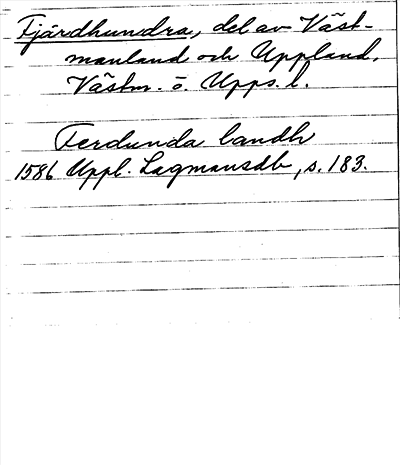 Fjärdhundra, del av Väst-
manland och Uppland,
Västm. o. Upps. l.
Ferdunda landh
1586 Uppl. Lagmansdb, s. 183.